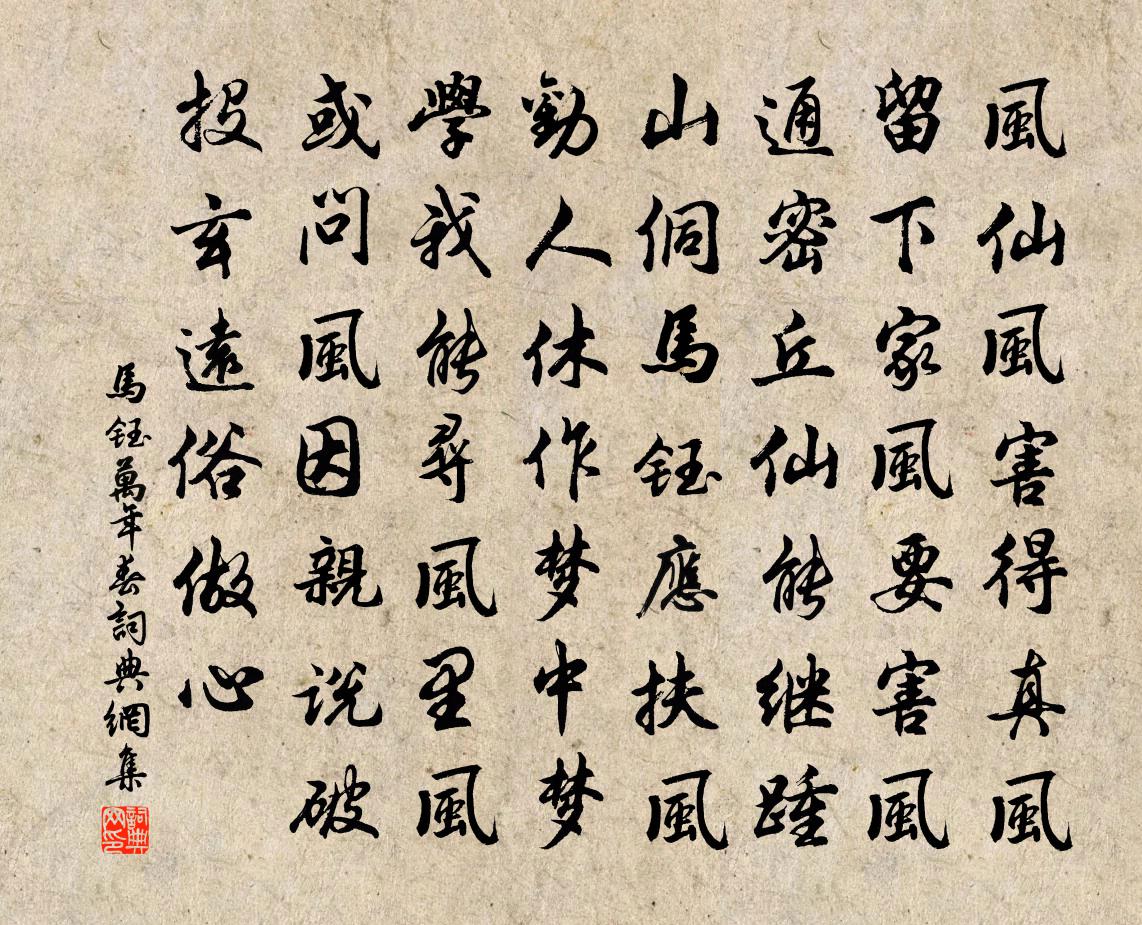 風仙風害得真風
留下家風要害風
通密丘仙能继踵
山侗馬鈺應扶風
勸人休作梦中梦
學我能尋風里風
或問風因親説破
投玄遠俗做心
馬鈺萬年春詞典網集
詞典网印